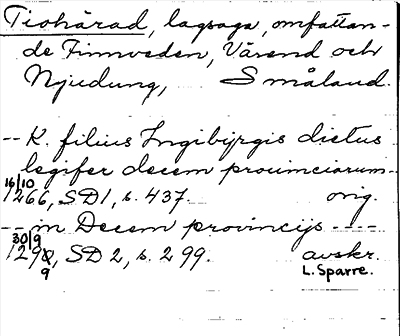 Tiohärad, lagsaga, omfattan-
de Finnveden, Värend och
Njudung, Småland.
-- K. filius Ingibyrgis dictus
legifer decem prouinciarum--
16/10 1266, SD 1, s. 437. orig.
-- in Decem provincijs ----
30/9 1299, SD 2, s. 299. avskr.
L. Sparre.